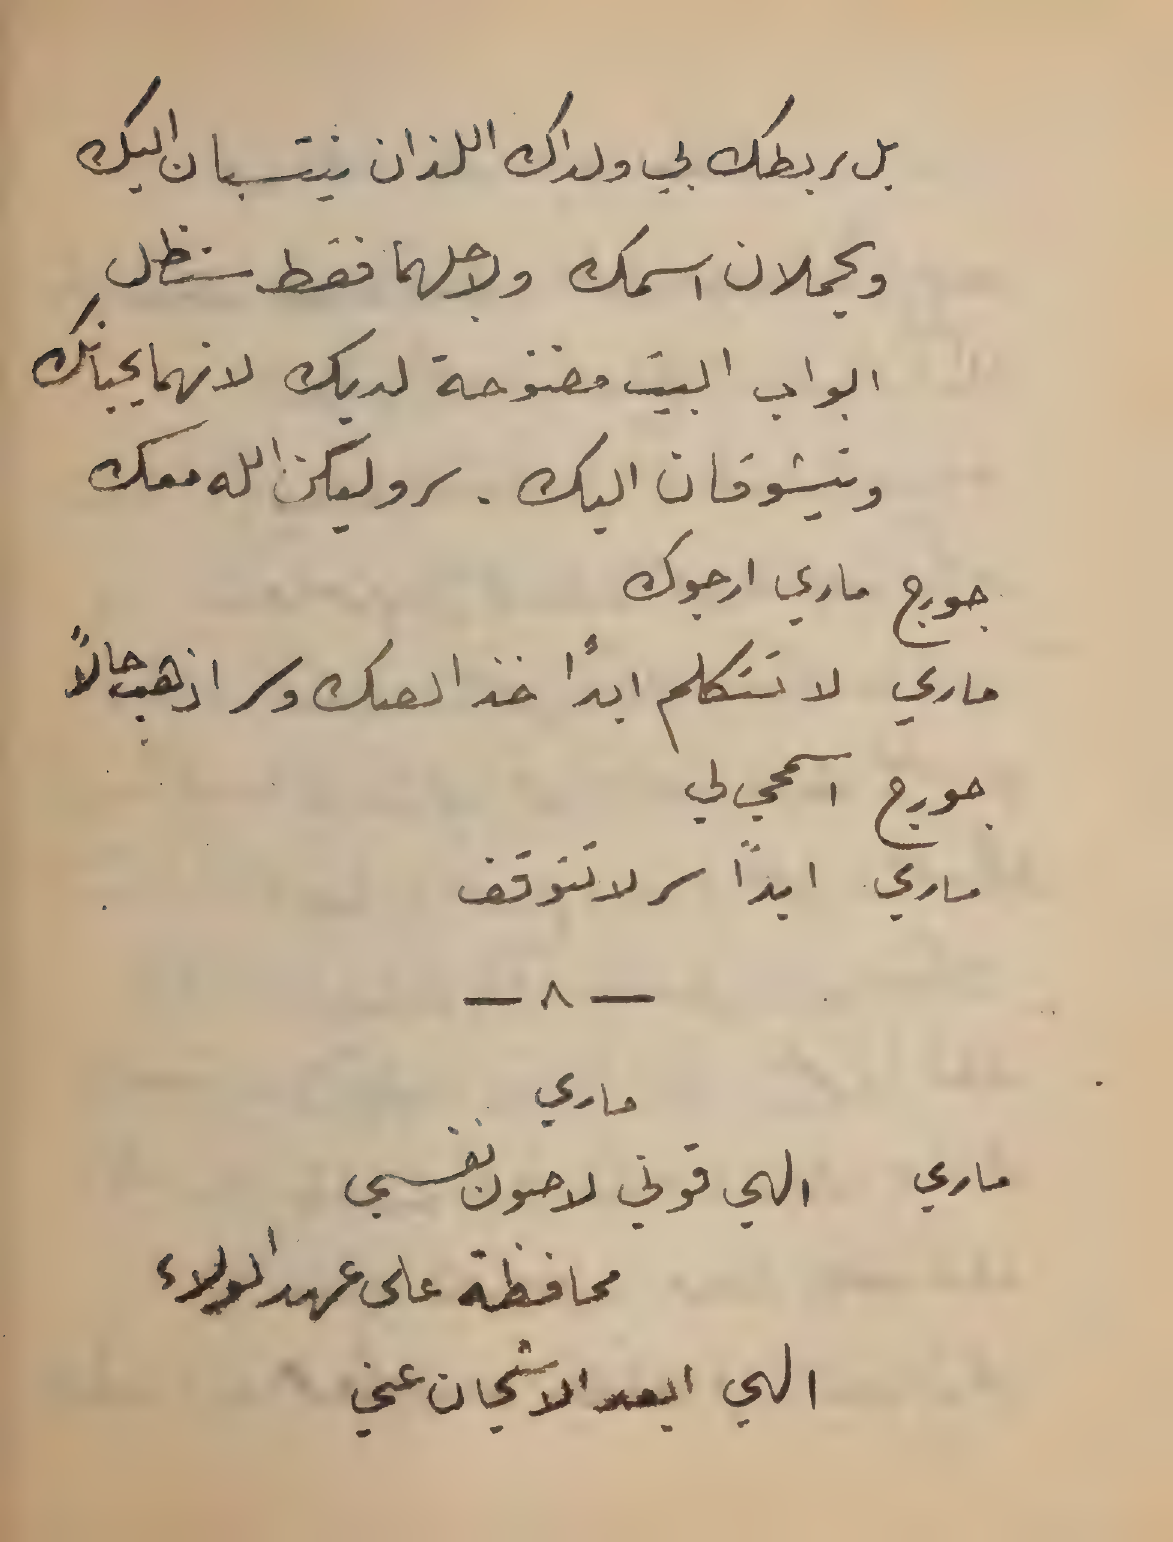 بل يربطك بي ولداك اللذان ينتسبان اليك
ويحملان اسمك ولاجلهما فقط ستظل
ابواب البيت مفتوحة لديك لانهما يحبانك
ويتشوقان اليك . سر وليكن الله معك
جورج ماري ارجوك
ماري لا تتكلم ابدًا خذ امعتك وسر اذهب حالاً
جورج اسمحي لي
ماري ابدًا سر لا تتوقف
— ٨ —
ماري
ماري الهي قوني لاصون نفسي
محافظة على عهد الولاء
الهي ابعد الاشجان عني